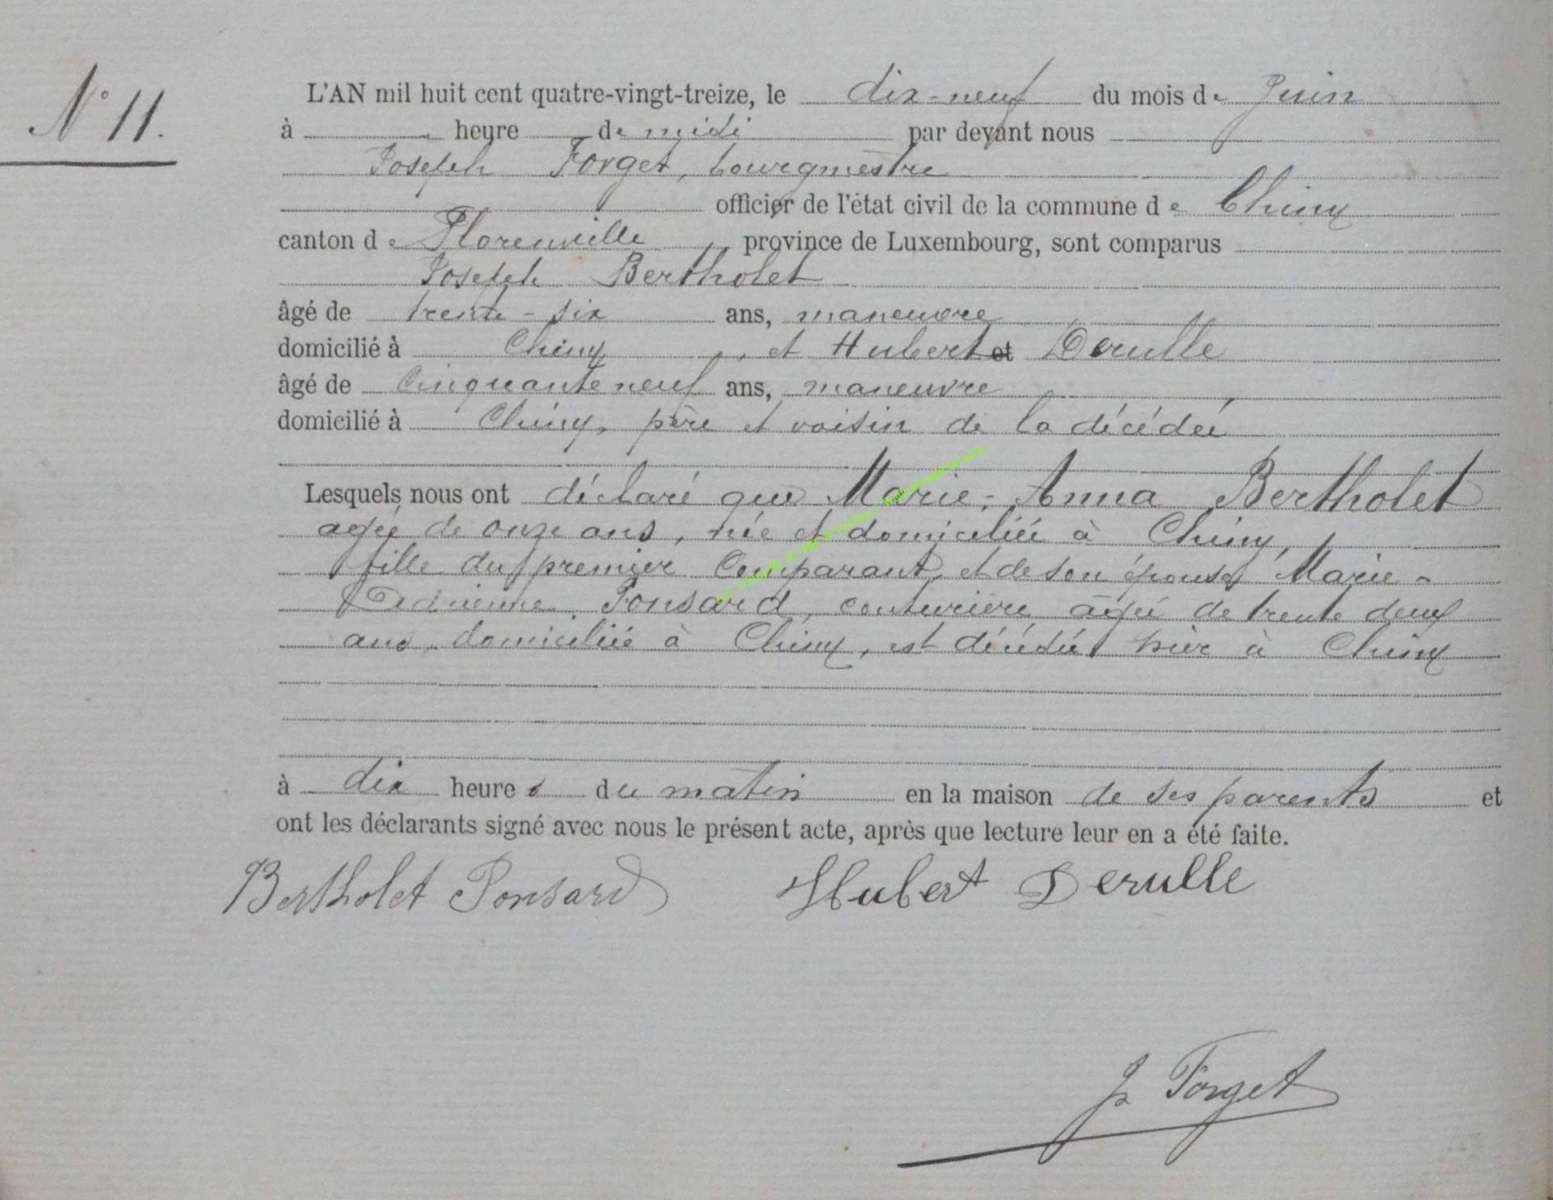 N° 11.
L'AN mil huit cent quatre-vingt-treize, le dix-neuf du mois de Juin
à heure de midi par devant nous
Joseph Forget, bourgmestre
officier de l'état civil de la commune de Chiny
canton de Florenville, province de Luxembourg, sont comparus
Joseph Bertholet
âgé de trente-six ans, manœuvre
domicilié à Chiny, et Hubert et Derulle
âgé de cinquante neuf ans, manœuvre
domicilié à Chiny, père et voisin de la décédée
Lesquels nous ont déclaré que Marie-Anna Bertholet
agée de onze ans, née et domiciliée à Chiny,
fille du premier Comparant, et de son épouse Marie-
Ponsard, couturière âgée de trente deux
ans, domiciliée à Chiny, est décédée hier à Chiny
à dix heures du matin en la maison de ses parents et
ont les déclarants signé avec nous le présent acte, après que lecture leur en a été faite.
Bertholet Ponsard Hubert Derulle
J. Forget